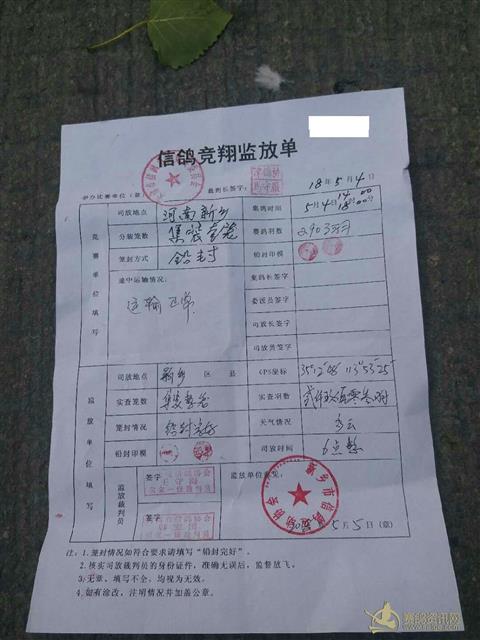 信鸽竞翔监放单
举办比赛单位(章) 裁判长签字: 18年5月4日
竞赛单位填写
司放地点 河南新乡 集鸽时间 5月4日
分装笼数 集装套笼 赛鸽羽数 2903羽
笼封方式 铅封 铅封印模
途中运输情况: 集鸽长签字
运输正常 委派员签字
司放长签字
司放员签字
监放单位填写
司放地点 新乡 区 县 GPS坐标 35°12′08″ 113°53′25″
实查笼数 实查羽数 贰仟玖佰零叁羽
笼封情况 铅封完好 天气情况 多云
铅封印模 司放时间 6点整
监放裁判员 签字 监放单位意见:
签字 新乡市信鸽协会
5月5日(章)
注:1.笼封情况如符合要求请填写“铅封完好”。
2.核实司放裁判员的身份证件,准确无误后,监督放飞。
3.无章、填写不全,均视为无效。
4.如有涂改,注明情况并加盖公章。
赛鸽资讯网